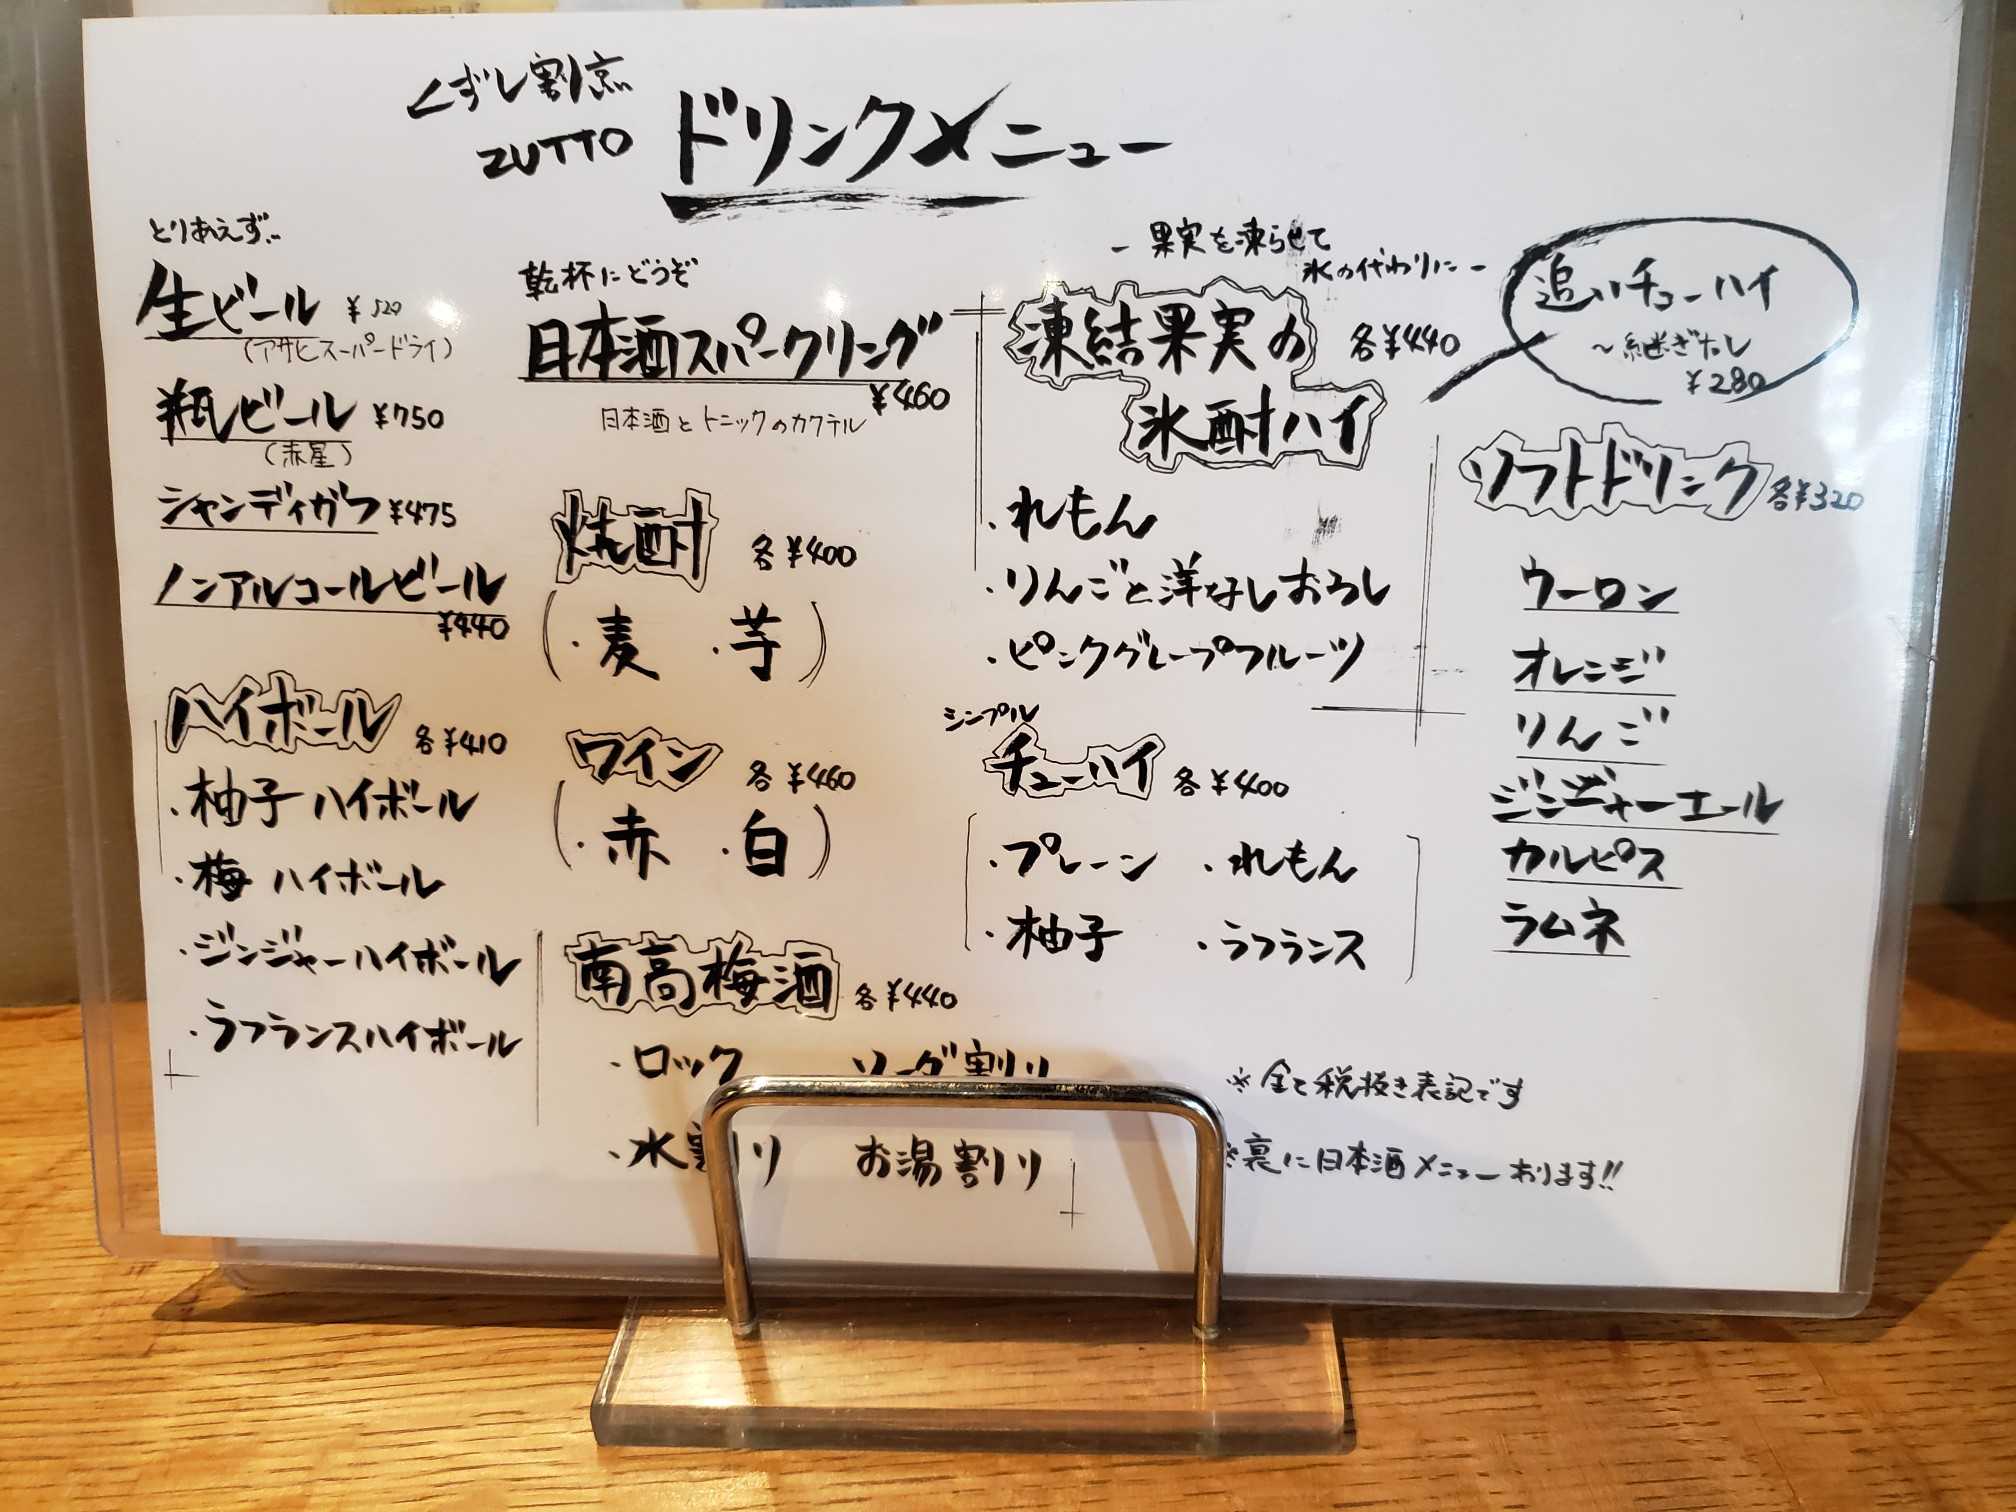 くずし割烹
ZUTTO
ドリンクメニュー
とりあえず…
生ビール ¥520
(アサヒスーパードライ)
瓶ビール ¥750
(赤星)
シャンディガフ ¥475
ノンアルコールビール
¥440
ハイボール 各¥410
・柚子ハイボール
・梅ハイボール
・ジンジャーハイボール
・ラフランスハイボール
乾杯にどうぞ
日本酒スパークリング
¥460
日本酒とトニックのカクテル
焼酎 各¥400
(・麦 ・芋)
ワイン 各¥460
(・赤 ・白)
南高梅酒 各¥440
・ロック ソーダ割り
・水割り お湯割り
－果実を凍らせて
氷の代わりに－
凍結果実の 各¥440
氷酎ハイ
・れもん
・りんごと洋なしおろし
・ピンクグレープフルーツ
シンプル
チューハイ 各¥400
・プレーン ・れもん
・柚子 ・ラフランス
追いチューハイ
～継ぎたし
¥280
ソフトドリンク 各¥320
ウーロン
オレンジ
りんご
ジンジャーエール
カルピス
ラムネ
※全て税抜き表記です
※裏に日本酒メニューおります!!